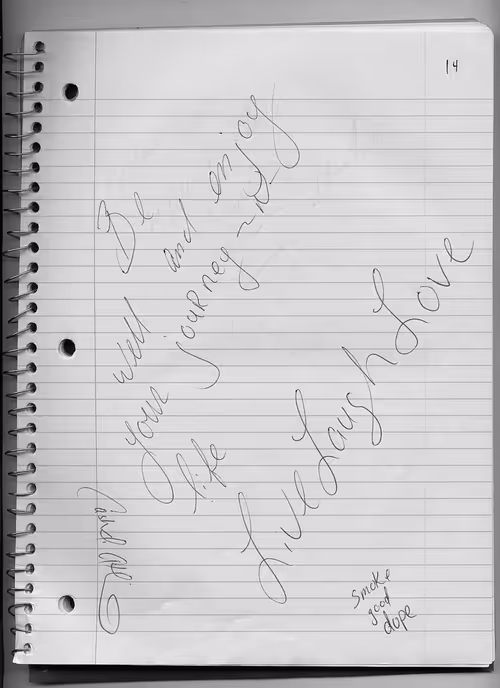 14
Be
well and enjoy
your journey ~
life
Live Laugh Love
smoke
good
dope